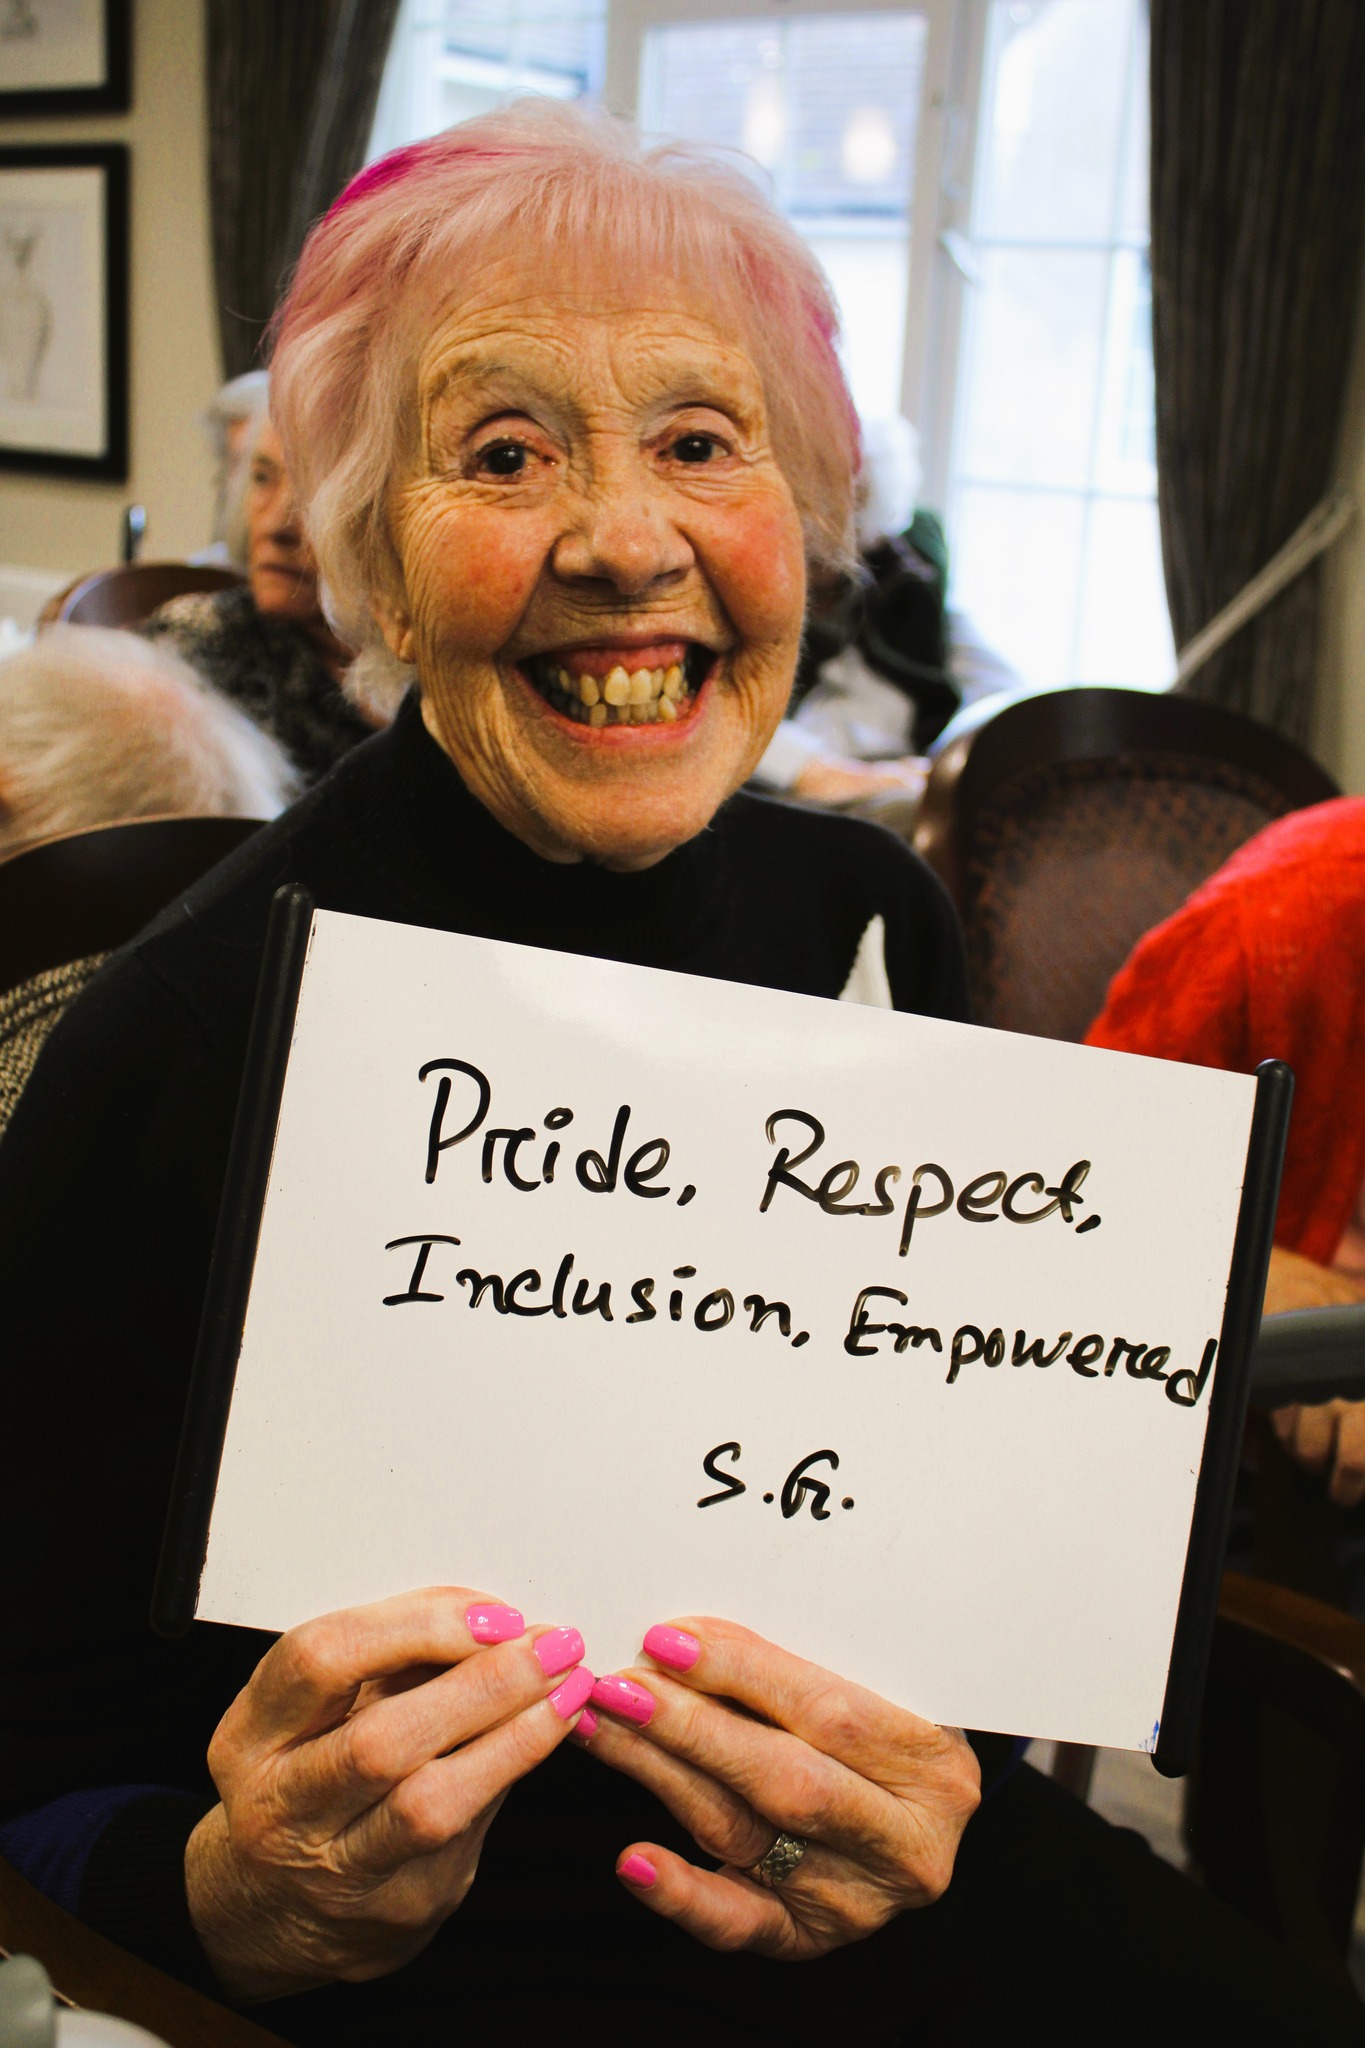 Pride, Respect,
Inclusion, Empowered
S.G.